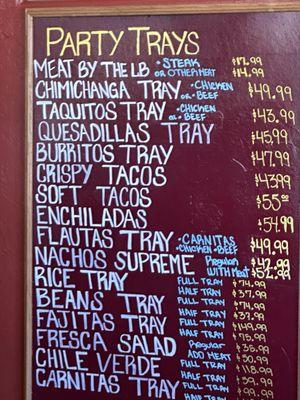 PARTY TRAYS
MEAT BY THE LB • STEAK $17.99
OR OTHER MEAT $14.99
CHIMICHANGA TRAY • CHICKEN OR • BEEF $49.99
TAQUITOS TRAY • CHICKEN OR • BEEF $43.99
QUESADILLAS TRAY $45.99
BURRITOS TRAY $47.99
CRISPY TACOS $43.99
SOFT TACOS $55.00
ENCHILADAS $54.99
FLAUTAS TRAY • CARNITAS • CHICKEN • BEEF $49.99
NACHOS SUPREME Regular $42.99
WITH MEAT $52.99
RICE TRAY FULL TRAY $74.99
HALF TRAY $37.99
BEANS TRAY FULL TRAY $74.99
HALF TRAY $37.99
FAJITAS TRAY FULL TRAY $149.99
HALF TRAY $75.99
FRESCA SALAD Regular $35.99
ADD MEAT $50.99
CHILE VERDE FULL TRAY $118.99
HALF TRAY $59.99
CARNITAS TRAY FULL TRAY $99.99
HALF TRAY